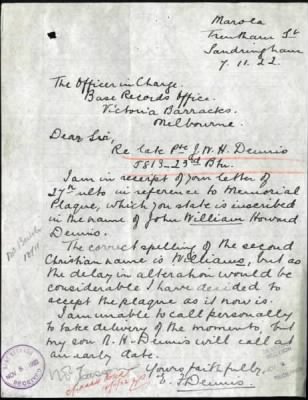 Maroia
Trentham St
Sandringham
7.11.22
The Officer in Charge.
Base Records Office.
Victoria Barracks.
Melbourne.
Dear Sir,
Re late Pte J. W. H. Dennis
5813 - 23rd Btn.
I am in receipt of your letter of
27th ulto in reference to Memorial
Plaque, which you state is inscribed
in the name of John William Howard
Dennis.
The correct spelling of the second
Christian name is Williams, but as
the delay in alteration would be
considerable I have decided to
accept the plaque as it now is.
I am unable to call personally
to take delivery of the momento, but
my son R. H. Dennis will call at
an early date.
Yours faithfully.
E. J. Dennis.
NOV 8 1922
RECEIVED